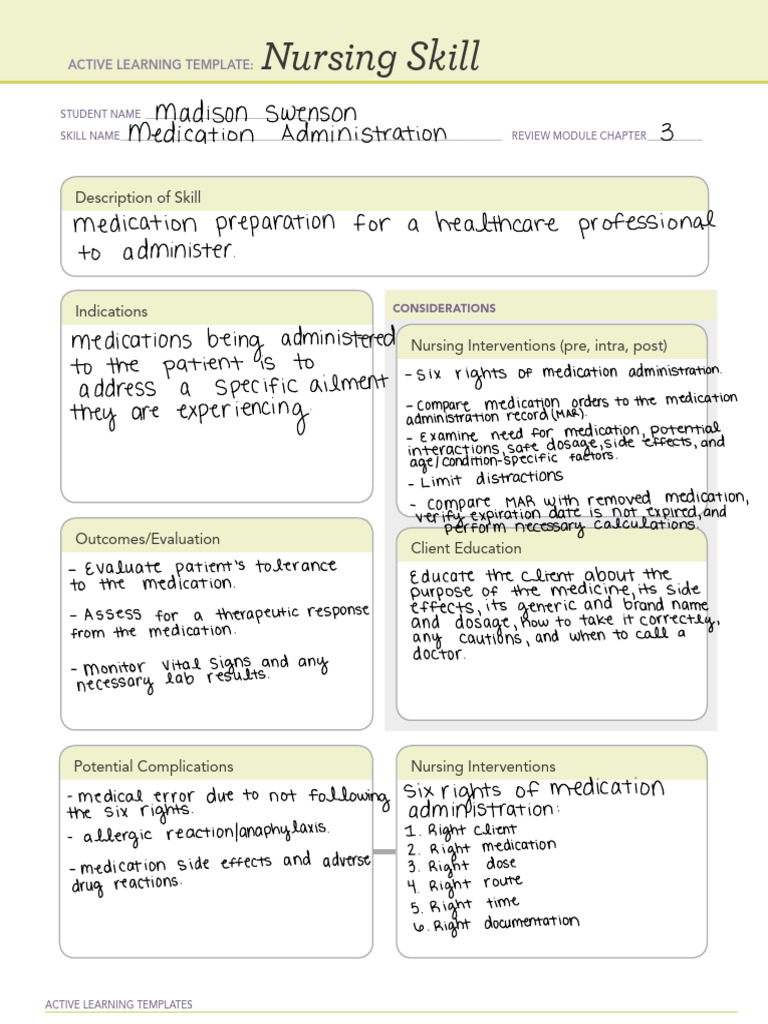 ACTIVE LEARNING TEMPLATE: Nursing Skill
STUDENT NAME Madison Swenson
SKILL NAME Medication Administration REVIEW MODULE CHAPTER 3
Description of Skill
medication preparation for a healthcare professional
to administer.
Indications
medications being administered
to the patient is to
address a specific ailment
they are experiencing.
CONSIDERATIONS
Nursing Interventions (pre, intra, post)
- Six rights of medication administration.
- Compare medication orders to the medication
administration record (MAR).
- Examine need for medication, potential
interactions, safe dosage, side effects, and
age/condition-specific factors.
- Limit distractions
- Compare MAR with removed medication,
verify expiration date is not expired, and
perform necessary calculations.
Outcomes/Evaluation
- Evaluate patient's tolerance
to the medication.
- Assess for a therapeutic response
from the medication.
- monitor vital signs and any
necessary lab results.
Client Education
Educate the client about the
purpose of the medicine, its side
effects, its generic and brand name
and dosage, how to take it correctly,
any cautions, and when to call a
doctor.
Potential Complications
- medical error due to not following
the six rights.
- allergic reaction/anaphylaxis.
- medication side effects and adverse
drug reactions.
Nursing Interventions
Six rights of medication
administration:
1. Right client
2. Right medication
3. Right dose
4. Right route
5. Right time
6. Right documentation
ACTIVE LEARNING TEMPLATES